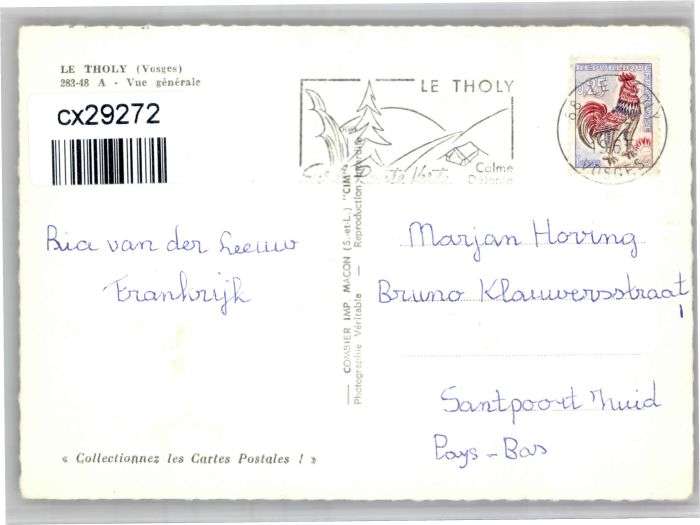 LE THOLY (Vosges)
283-48 A - Vue générale
cx29272
LE THOLY
Calme
88 LE
VOSGES
Ria van der Leeuw
Frankrijk
— COMBIER IMP. MACON (S.-et-L.) "CIM" —
Photographie Véritable - Reproduction Interdite
Marjan Hoving
Bruno Klauwersstraat
1
Santpoort Zuid
Pays-Bas
« Collectionnez les Cartes Postales ! »